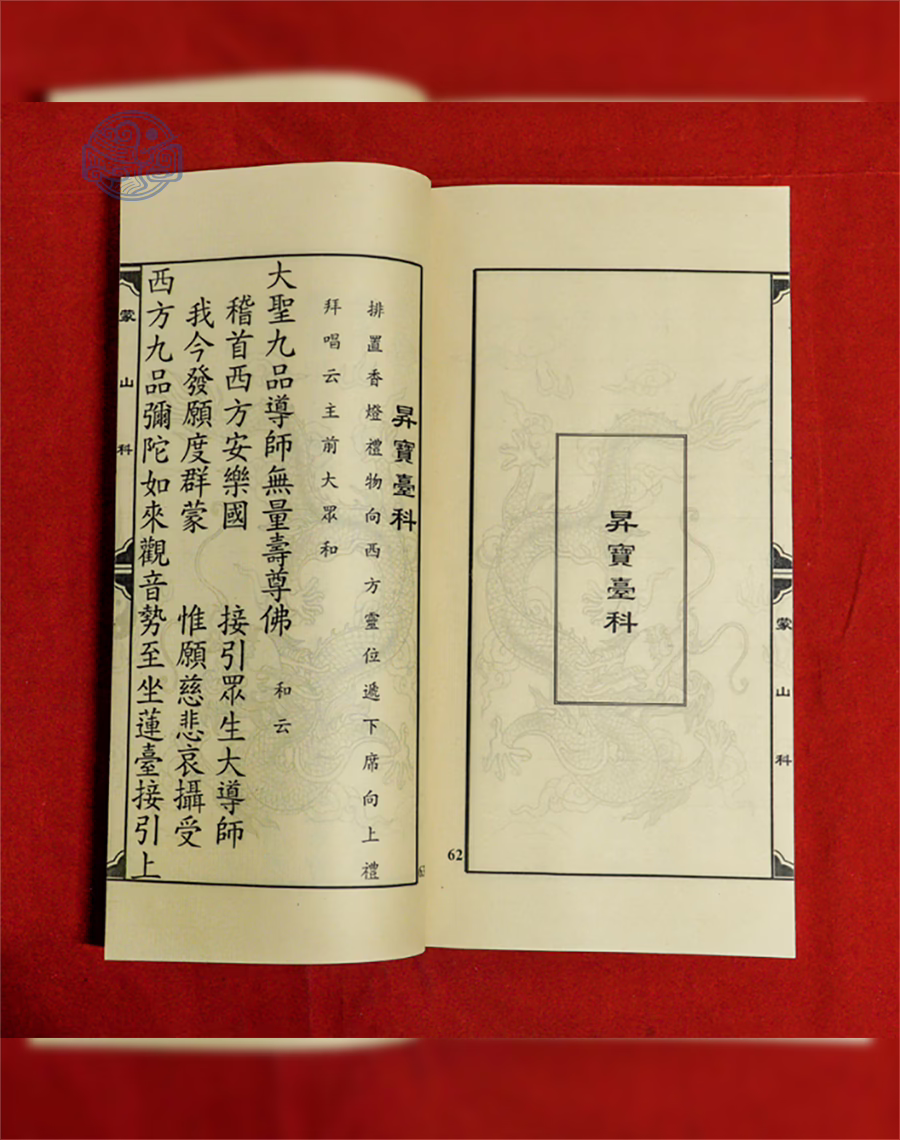 蒙山科
昇寶臺科
62
63
昇寶臺科
排置香燈禮物向西方靈位遞下席向上禮
拜唱云主前大眾和
大聖九品導師無量壽尊佛 和云
稽首西方安樂國 接引眾生大導師
我今發願度群蒙 惟願慈悲哀攝受
西方九品彌陀如來觀音勢至坐蓮臺接引上
蒙山科